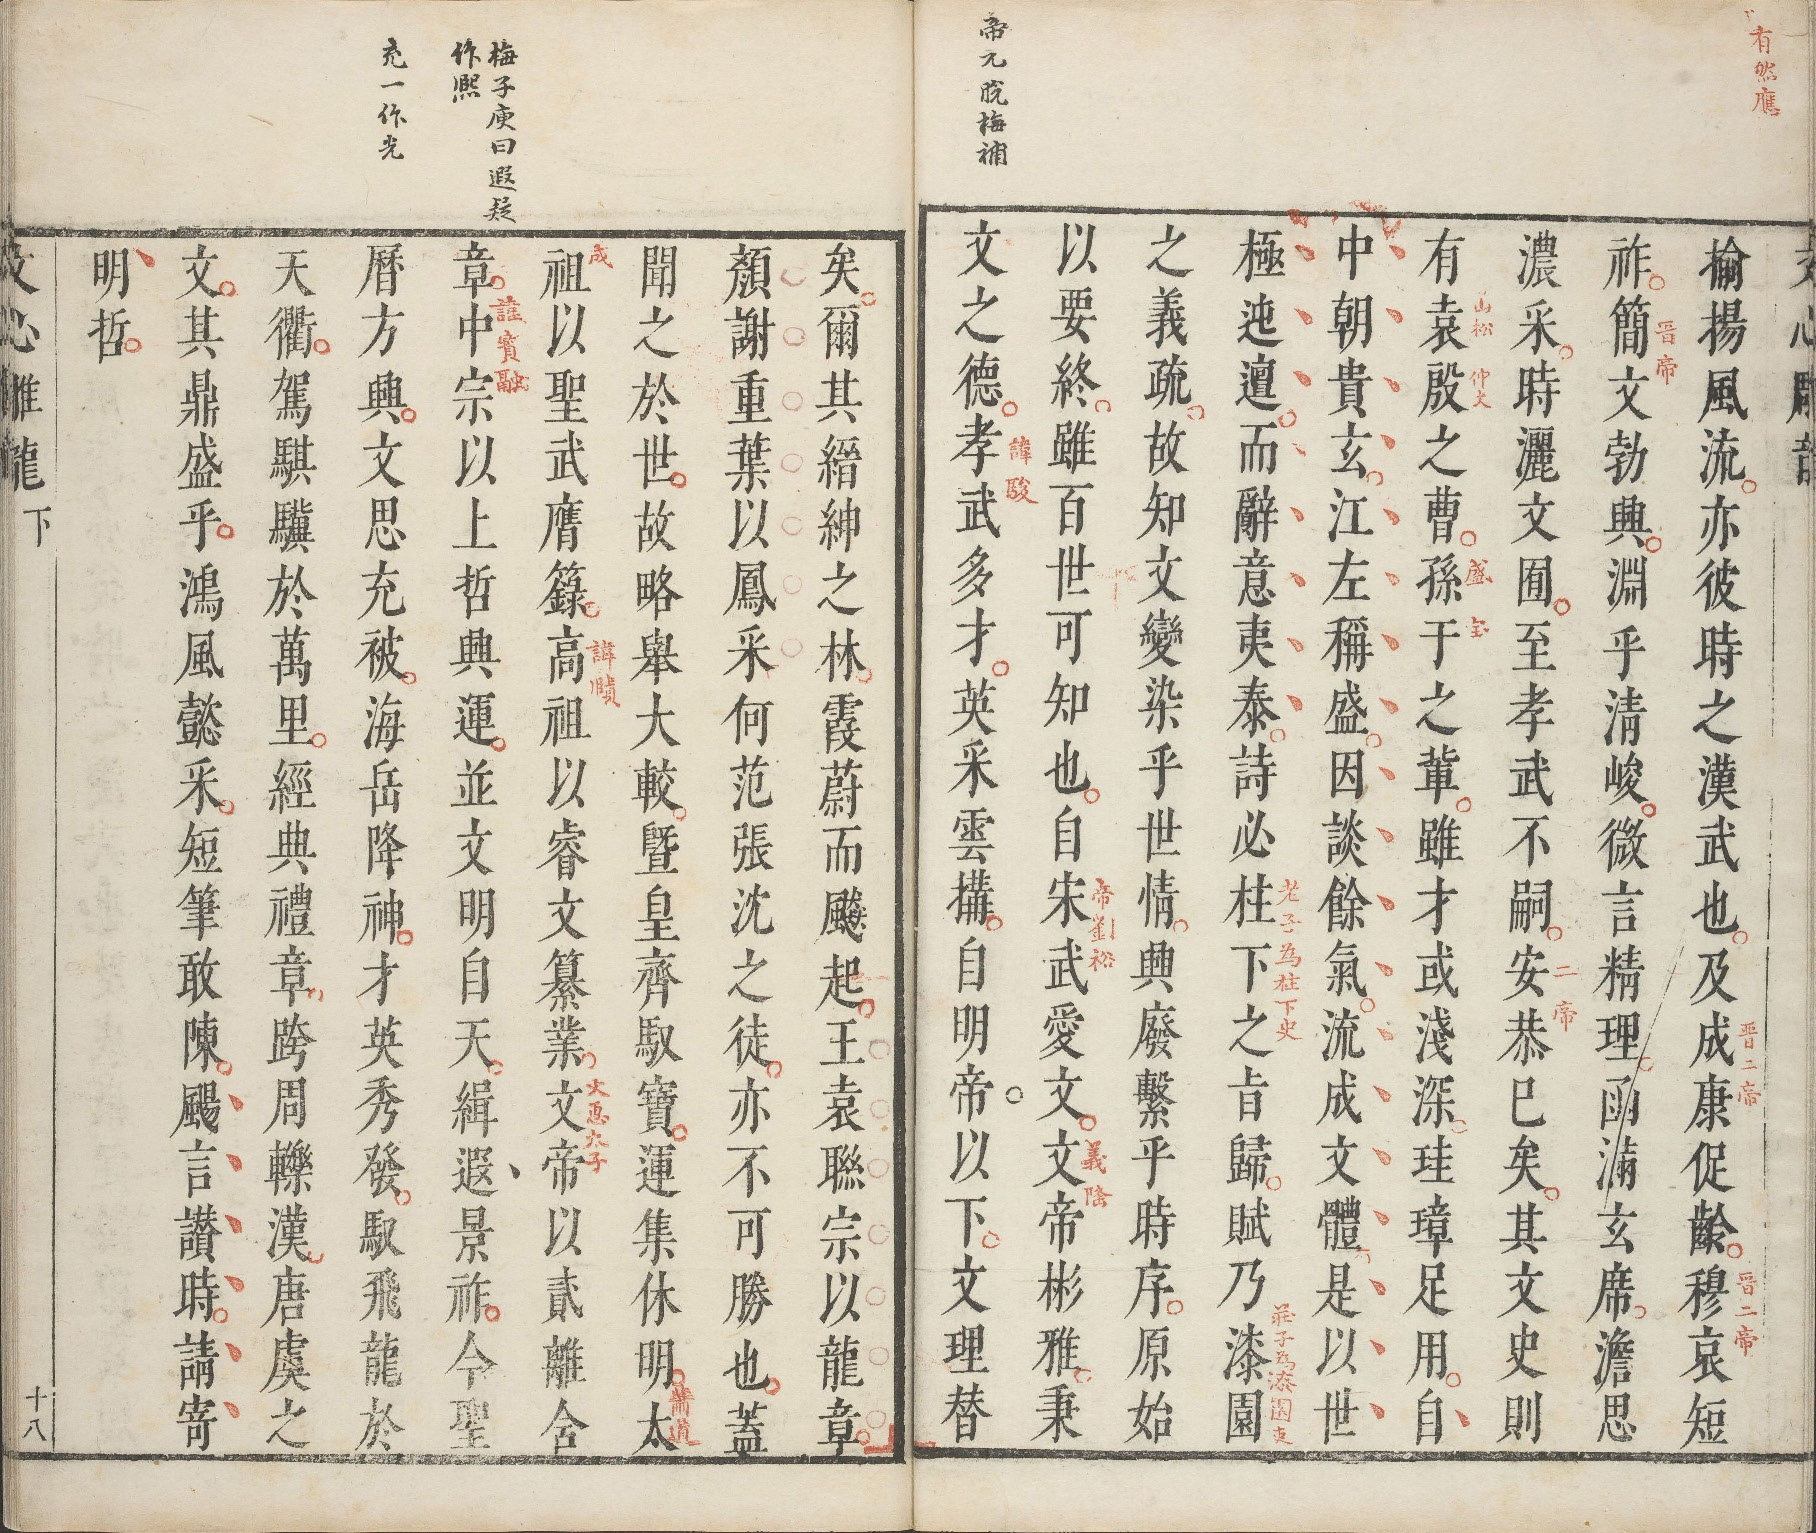 有然應
帝元脫梅補
文心雕龍
揄揚風流亦彼時之漢武也及成康促齡穆哀短
晋二帝
晋二帝
祚簡文勃興淵乎清峻微言精理函滿玄席澹思
晋帝
濃采時灑文囿至孝武不嗣安恭已矣其文史則
二帝
有袁殷之曹孫干之輩雖才或淺深珪璋足用自
山松
仲文
盛
宝
中朝貴玄江左稱盛因談餘氣流成文體是以世
極迍邅而辭意夷泰詩必柱下之旨歸賦乃漆園
老子為柱下史
莊子為漆園吏
之義疏故知文變染乎世情興廢繫乎時序原始
以要終雖百世可知也自宋武愛文文帝彬雅秉
帝劉裕
義隆
文之德孝武多才英采雲搆自明帝以下文理替
諱駿
梅子庾曰遐疑
作熙
充一作光
矣爾其縉紳之林霞蔚而飈起王袁聮宗以龍章
顏謝重葉以鳳采何范張沈之徒亦不可勝也蓋
聞之於世故略舉大較曁皇齊馭寶運集休明太
蕭道
成
祖以聖武膺籙高祖以睿文纂業文帝以貳離含
諱賾
文惠太子
章中宗以上哲興運並文明自天緝遐景祚今聖
諱寶融
曆方興文思充被海岳降神才英秀發馭飛龍於
天衢駕騏驥於萬里經典禮章跨周轢漢唐虞之
文其鼎盛乎鴻風懿采短筆敢陳颺言讃時請寄
明哲
文心雕龍
下
十八